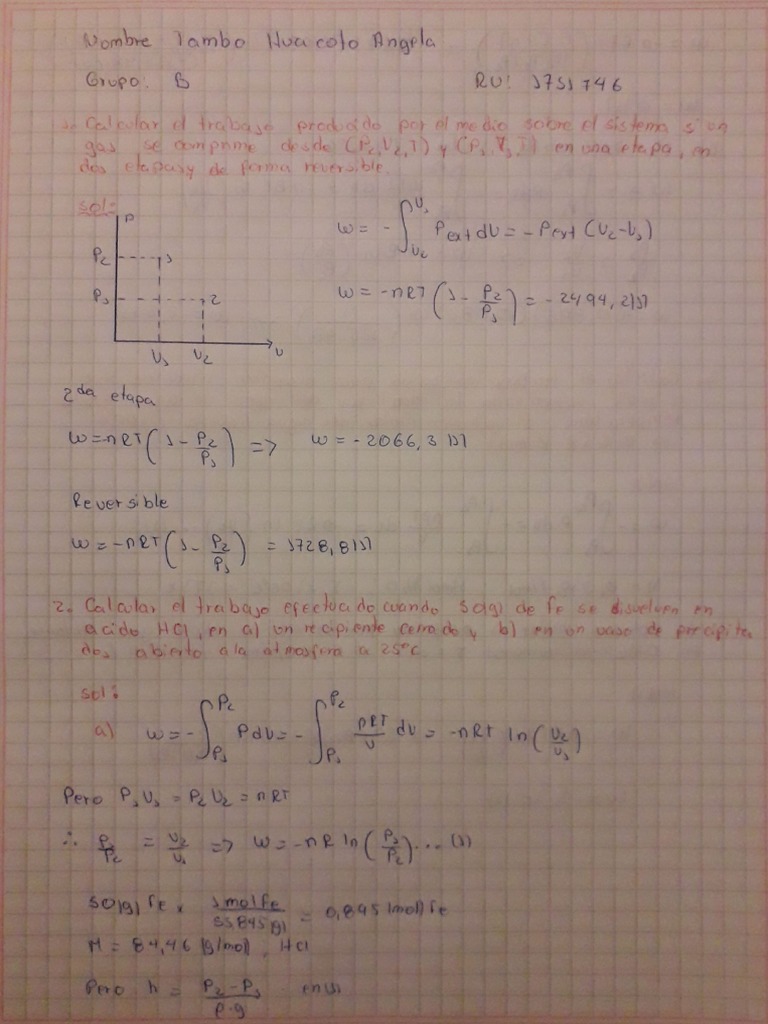 Nombre Tambo Huacoto Angela
Grupo: B RU: 1751746
1.- Calcular el trabajo producido por el medio sobre el sistema si un
gas se comprime desde (P2,V2,T) y (P1,V1,T) en una etapa, en
dos etapas y de forma reversible.
sol:
P
P2 1
P1 2
V1 V2 V
W = - ∫_{V2}^{V1} Pext dV = - Pext (V2-V1)
W = -nRT (1 - P2/P1) = - 2494,2 [J]
2da etapa
W=-nRT (1 - P2/P1) => W = -2066,3 [J]
Reversible
W = -nRT (1 - P2/P1) = 1728,8 [J]
2. Calcular el trabajo efectuado cuando 50[g] de Fe se disuelven en
acido HCl, en a) un recipiente cerrado y b) en un vaso de precipita
dos, abierto a la atmosfera a 25°C
sol:
a) W = - ∫_{P1}^{P2} P dV = - ∫_{P1}^{P2} nRT/V dV = -nRT ln (V2/V1)
Pero P1 V1 = P2 V2 = nRT
∴ P1/P2 = V2/V1 => W = -nR ln (P1/P2) ... (1)
50[g] Fe x 1mol Fe/55,845[g] = 0,895[mol] Fe
M = 84,46 [g/mol], HCl
Pero h = P2-P1/ρ·g en(1)